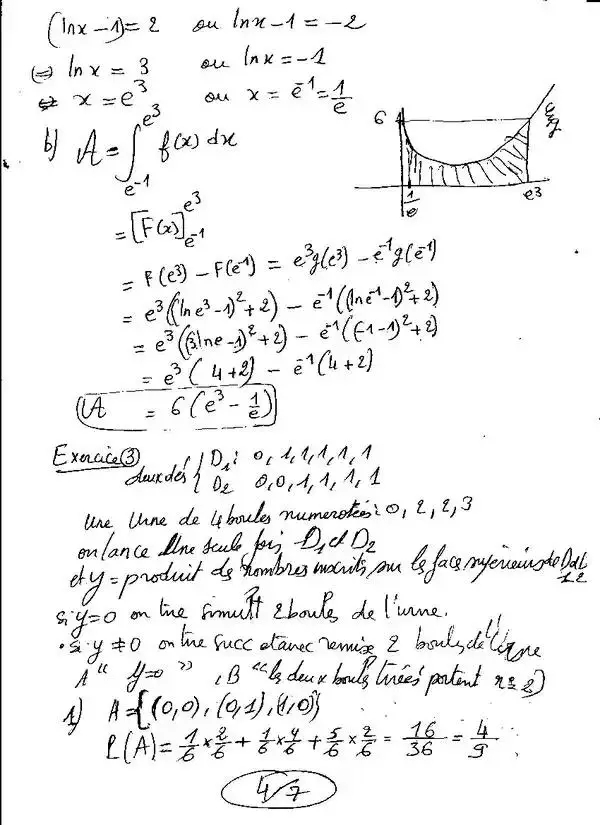 (lnx-1)=2 ou lnx-1=-2
⇔ lnx = 3 ou lnx=-1
⇔ x = e³ ou x = e⁻¹ = 1/e
b) A = ∫_{e⁻¹}^{e³} f(x) dx
6
1/e e³
= [F(x)]_{e⁻¹}^{e³}
= F(e³) - F(e⁻¹) = e³g(e³) - e⁻¹g(e⁻¹)
= e³((lne³-1)²+2) - e⁻¹((lne⁻¹-1)²+2)
= e³((3lne-1)²+2) - e⁻¹((-1-1)²+2)
= e³(4+2) - e⁻¹(4+2)
A = 6(e³ - 1/e)
Exercice ③
deux dés { D1: 0, 1, 1, 1, 1, 1
D2 0, 0, 1, 1, 1, 1
une Urne de 4 boules numerotées: 0, 2, 2, 3
on lance Une seule fois D1 et D2
et y = produit de nombres inscrits sur la face supérieure de
si y=0 on tire simult 2 boules de l'urne.
• si y ≠ 0 on tire succ et avec remise 2 boules de l'urne
A " y=0 " , B " les deux boules tirées portent n=2)
1) A = {(0,0), (0,1), (1,0)}
P(A) = 1/6 × 2/6 + 1/6 × 4/6 + 5/6 × 2/6 = 16/36 = 4/9
4/7